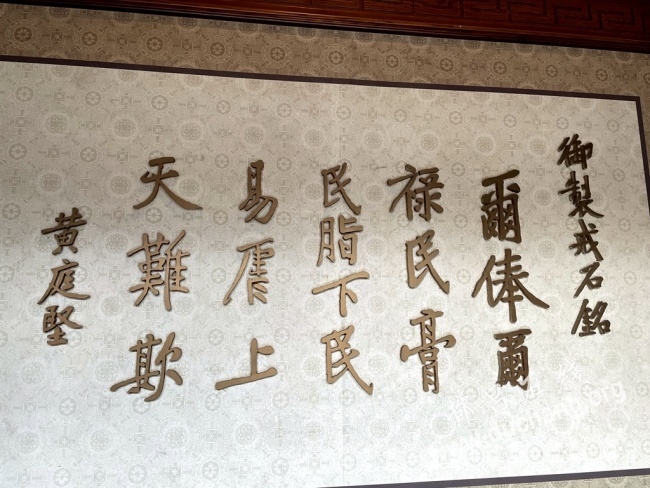 御製戒石銘
爾俸爾
禄民膏
民脂下民
易虐上
天難欺
黄庭堅